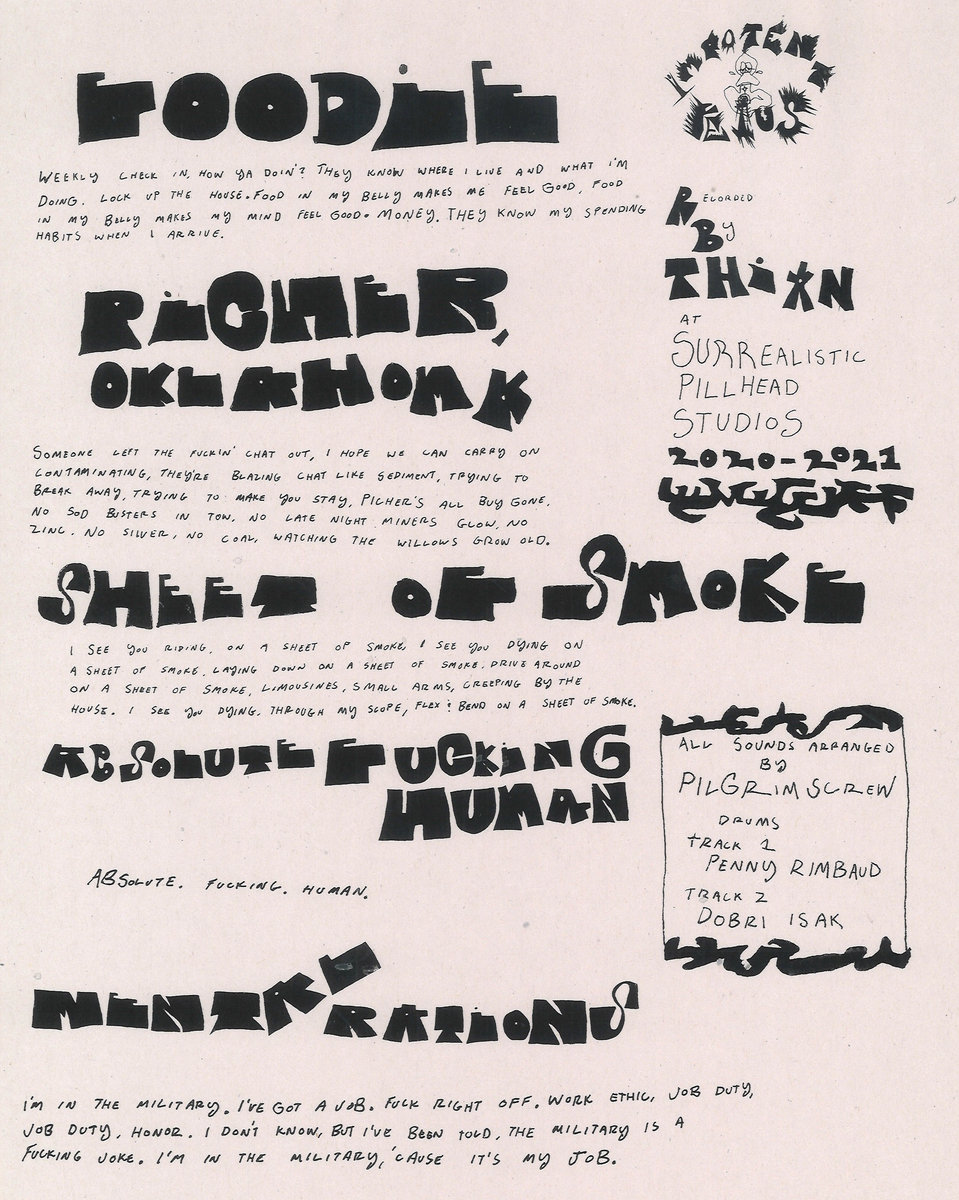 FOODIE
WEEKLY CHECK IN, HOW YA DOIN'? THEY KNOW WHERE I LIVE AND WHAT I'M
DOING. LOCK UP THE HOUSE. FOOD IN MY BELLY MAKES ME FEEL GOOD, FOOD
IN MY BELLY MAKES MY MIND FEEL GOOD. MONEY. THEY KNOW MY SPENDING
HABITS WHEN I ARRIVE.
PICHER,
OKLAHOMA
SOMEONE LEFT THE FUCKIN' CHAT OUT, I HOPE WE CAN CARRY ON
CONTAMINATING, THEY'RE BLAZING CHAT LIKE SEDIMENT, TRYING TO
BREAK AWAY, TRYING TO MAKE YOU STAY, PICHER'S ALL BUY GONE.
NO SOD BUSTERS IN TOW, NO LATE NIGHT MINERS GLOW, NO
ZINC. NO SILVER, NO COAL, WATCHING THE WILLOWS GROW OLD.
SHEET OF SMOKE
I SEE YOU RIDING, ON A SHEET OF SMOKE, I SEE YOU DYING ON
A SHEET OF SMOKE, LAYING DOWN ON A SHEET OF SMOKE. DRIVE AROUND
ON A SHEET OF SMOKE, LIMOUSINES, SMALL ARMS, CREEPING BY THE
HOUSE. I SEE YOU DYING, THROUGH MY SCOPE, FLEX & BEND ON A SHEET OF SMOKE.
ABSOLUTE FUCKING
HUMAN
ABSOLUTE. FUCKING. HUMAN.
MENTAL
RATIONS
I'M IN THE MILITARY. I'VE GOT A JOB. FUCK RIGHT OFF. WORK ETHIC, JOB DUTY,
JOB DUTY, HONOR. I DON'T KNOW, BUT I'VE BEEN TOLD, THE MILITARY IS A
FUCKING JOKE. I'M IN THE MILITARY, 'CAUSE IT'S MY JOB.
RECORDED
BY
THIXN
AT
SURREALISTIC
PILLHEAD
STUDIOS
2020-2021
ALL SOUNDS ARRANGED
BY
PILGRIM SCREW
DRUMS
TRACK 1
PENNY RIMBAUD
TRACK 2
DOBRI ISAK